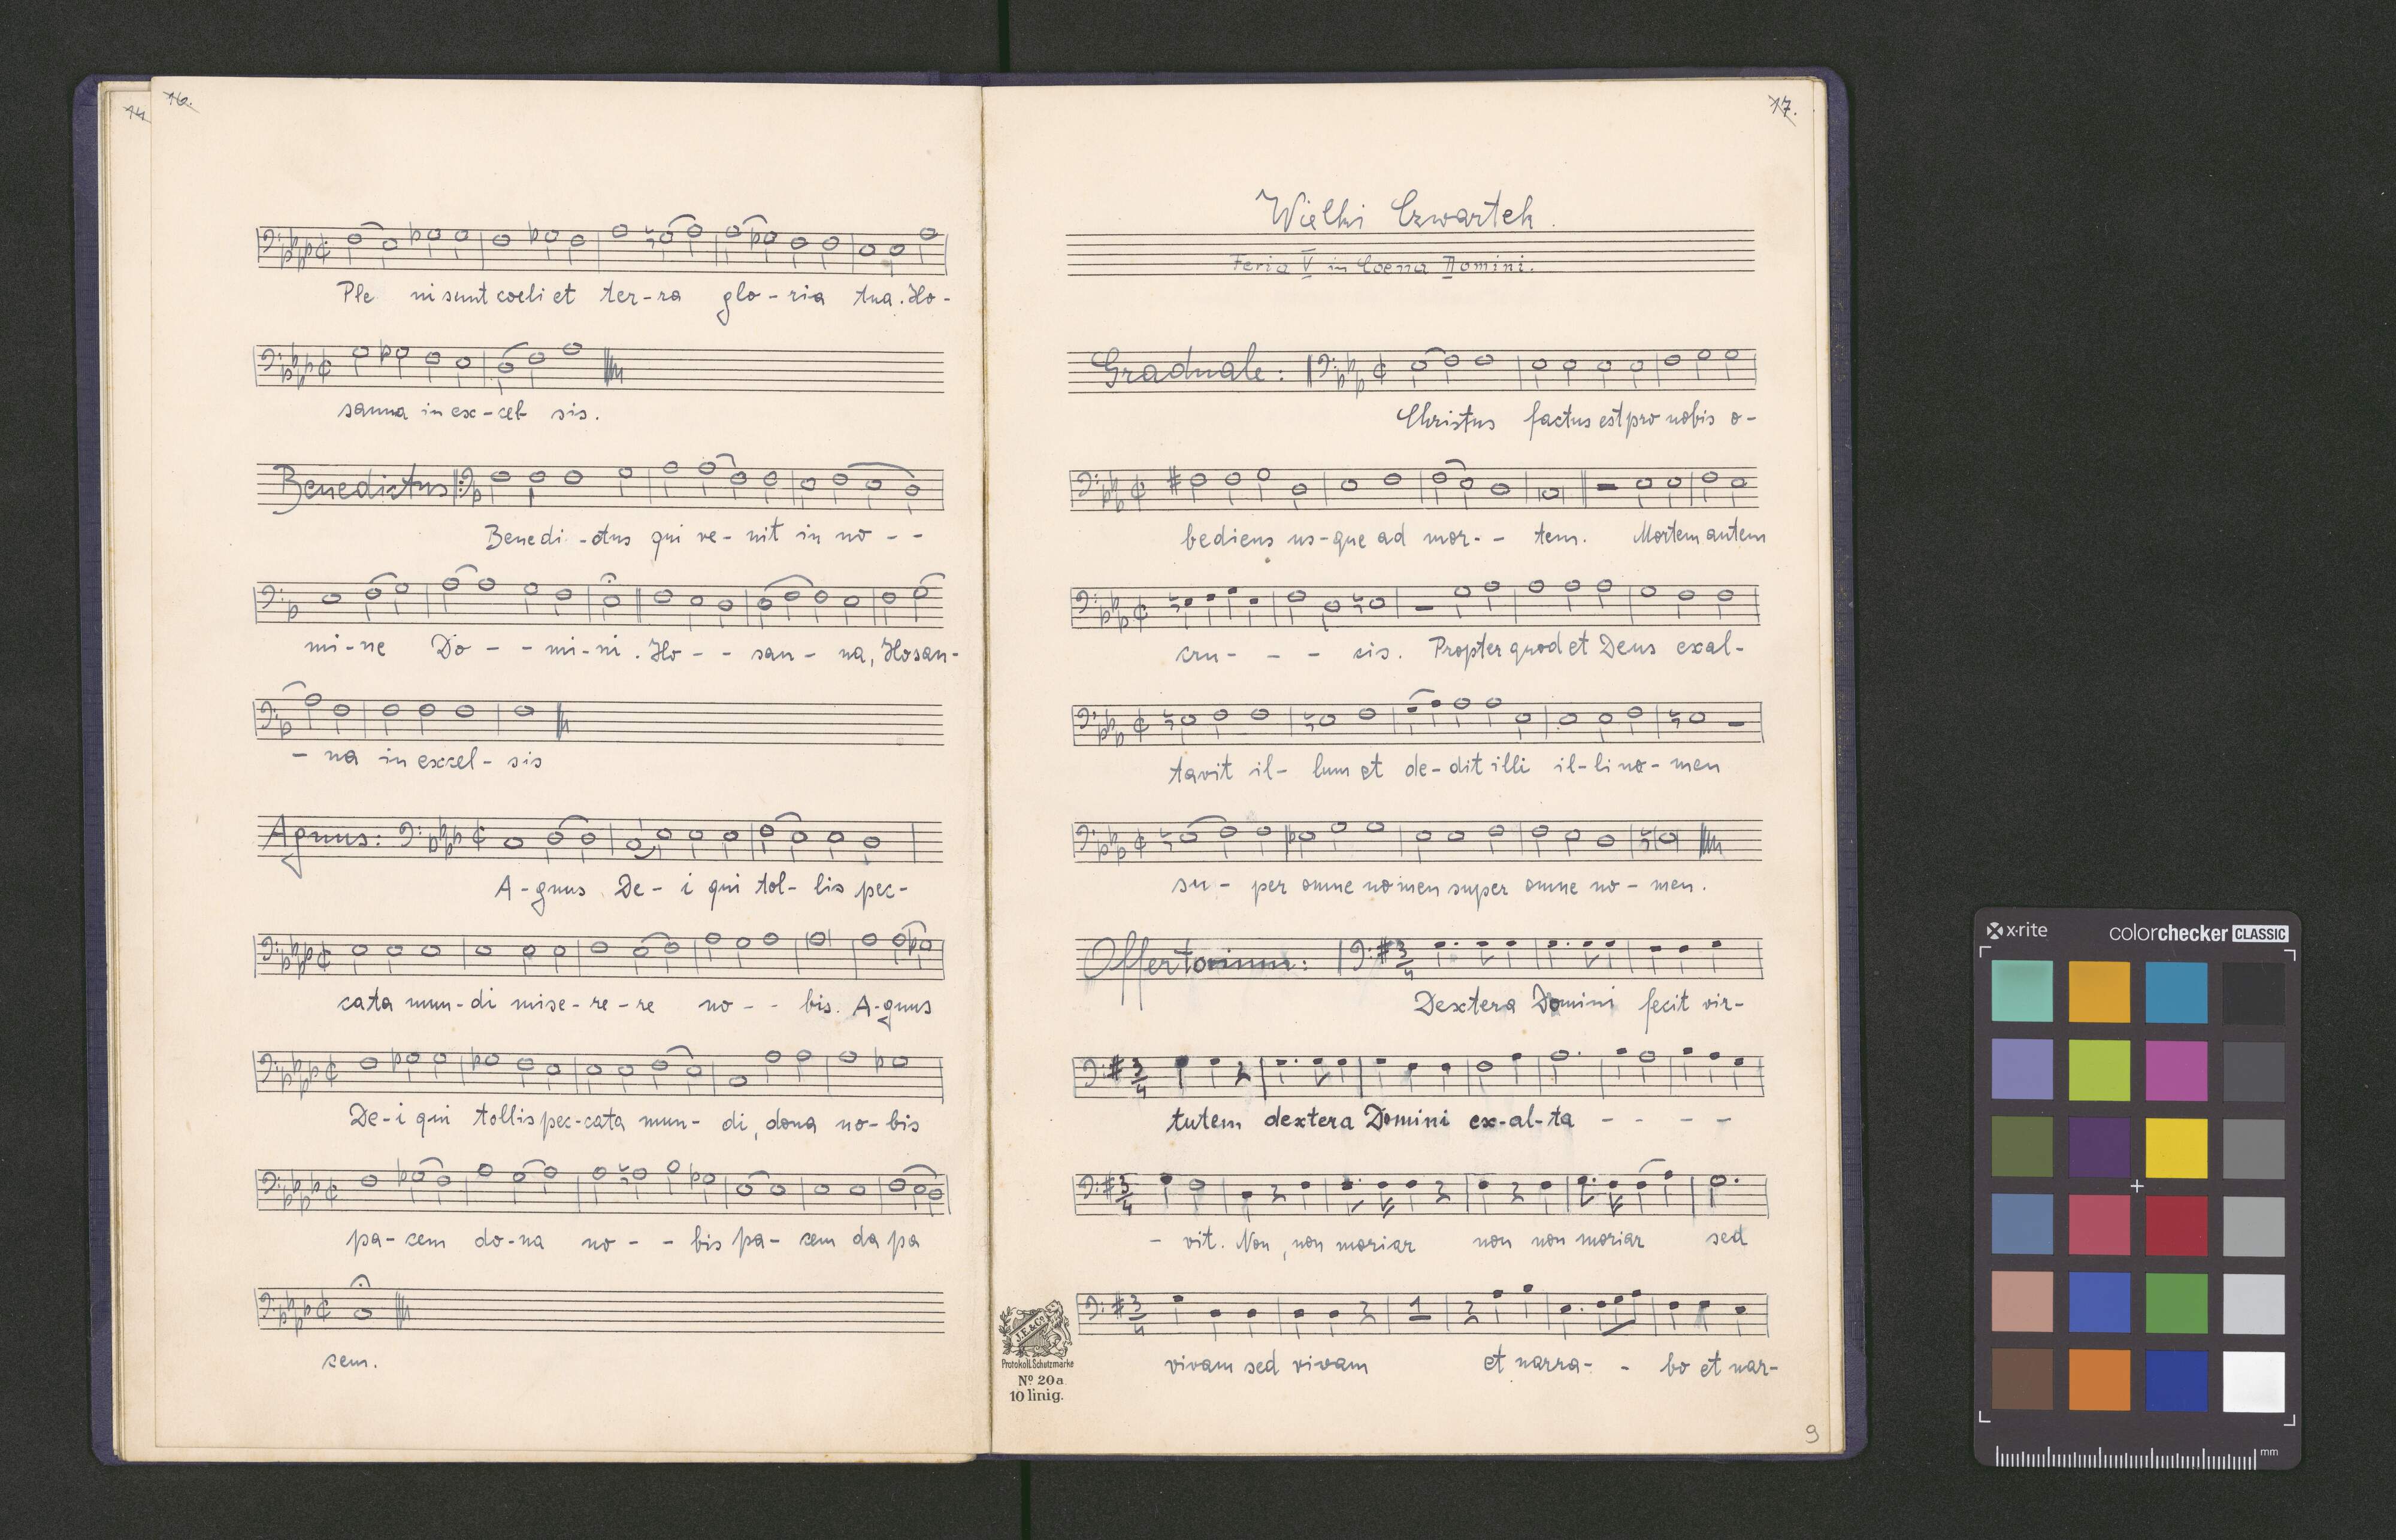 14
16.
Ple ni sunt coeli et ter-ra glo-ria tua. Ho-
sanna in ex-cel- sis.
Benedictus
Benedi-ctus qui ve-nit in no - -
mi-ne Do - - mi-ni. Ho - - san - na, Hosan-
- na in excel- sis
Agnus:
A-gnus De-i qui tol-lis pec-
cata mun-di mise-re-re no - - bis. A-gnus
De-i qui tollis pec-cata mun- di, dona no-bis
pa-cem do-na no - - bis pa-cem da pa
cem.
17.
Wielki Czwartek.
Feria V in Coena Domini.
Graduale:
Christus factus est pro nobis o-
bediens us-que ad mor- - tem. Mortem autem
cru- - - cis. Propter quod et Deus exal-
tavit il- lum et de-dit illi il-li no-men
su- per omne nomen super omne no-men.
Offertorium:
3/4
Dextera Domini fecit vir-
3/4
tutem dextera Domini ex-al-ta - - - -
3/4
- vit. Non, non moriar non non moriar sed
3/4 1
vivam sed vivam et narra- - bo et nar-
J.E.&Co.
Protokoll. Schutzmarke
No 20a
10 linig.
9
x-rite
colorchecker CLASSIC
mm